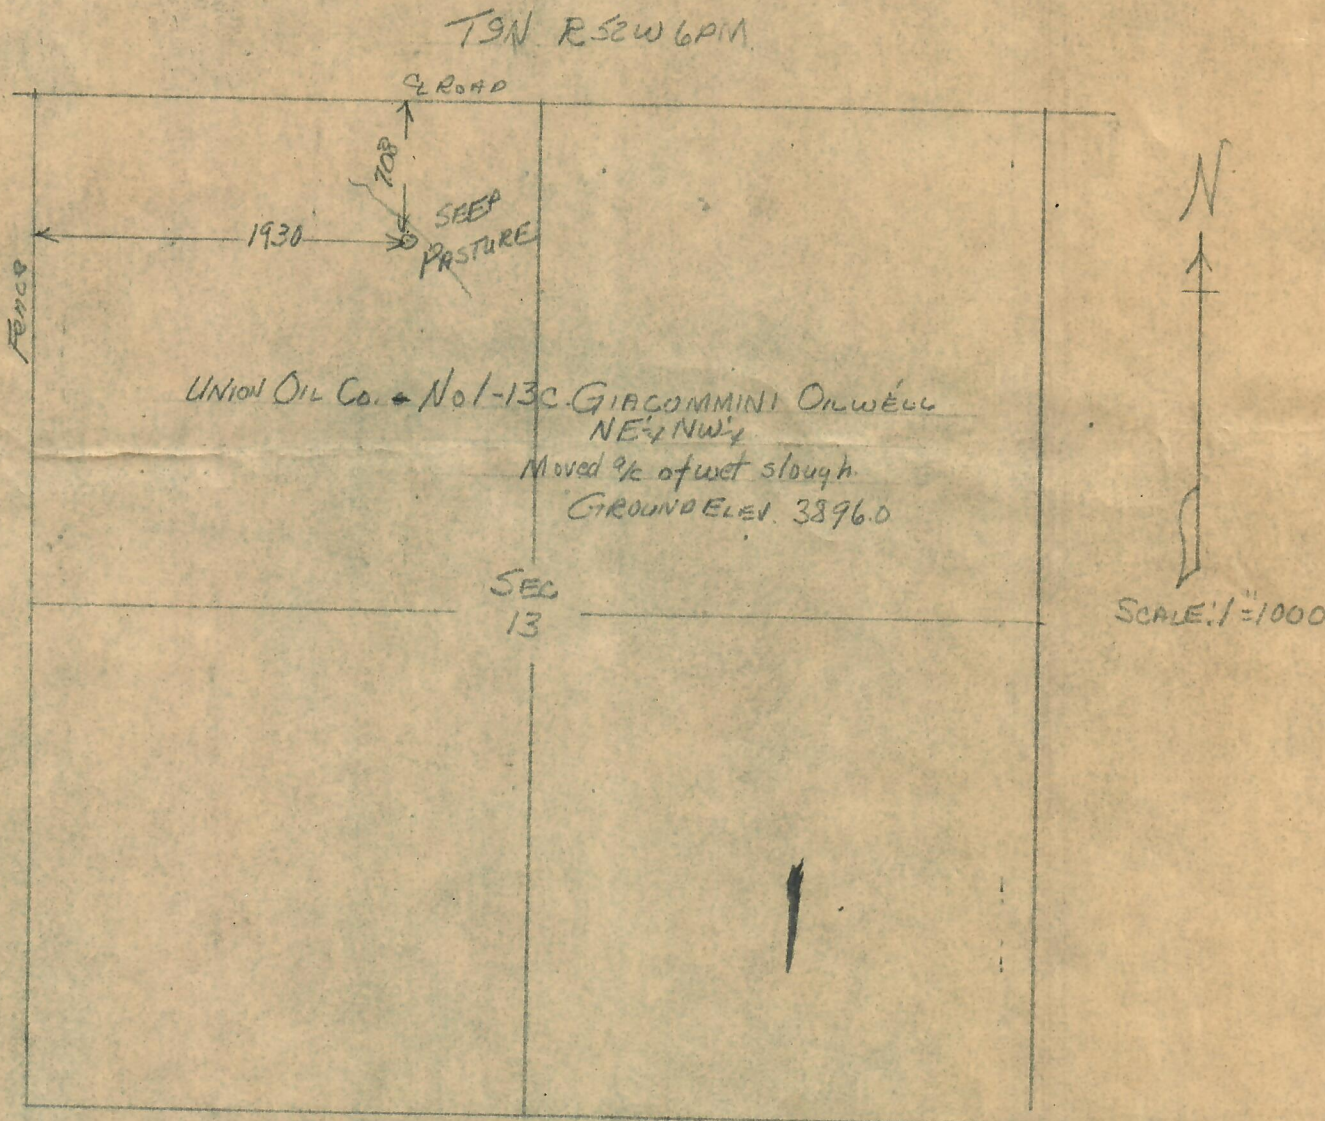 T9N R52W 6PM
℄ ROAD
708
1930
SEEP
PASTURE
Fence
N
UNION OIL Co. - No 1-13C GIACOMMINI OILWELL
NE¼ NW¼
Moved a/c of wet slough
GROUND ELEV. 3896.0
SEC
13
SCALE: 1"=1000